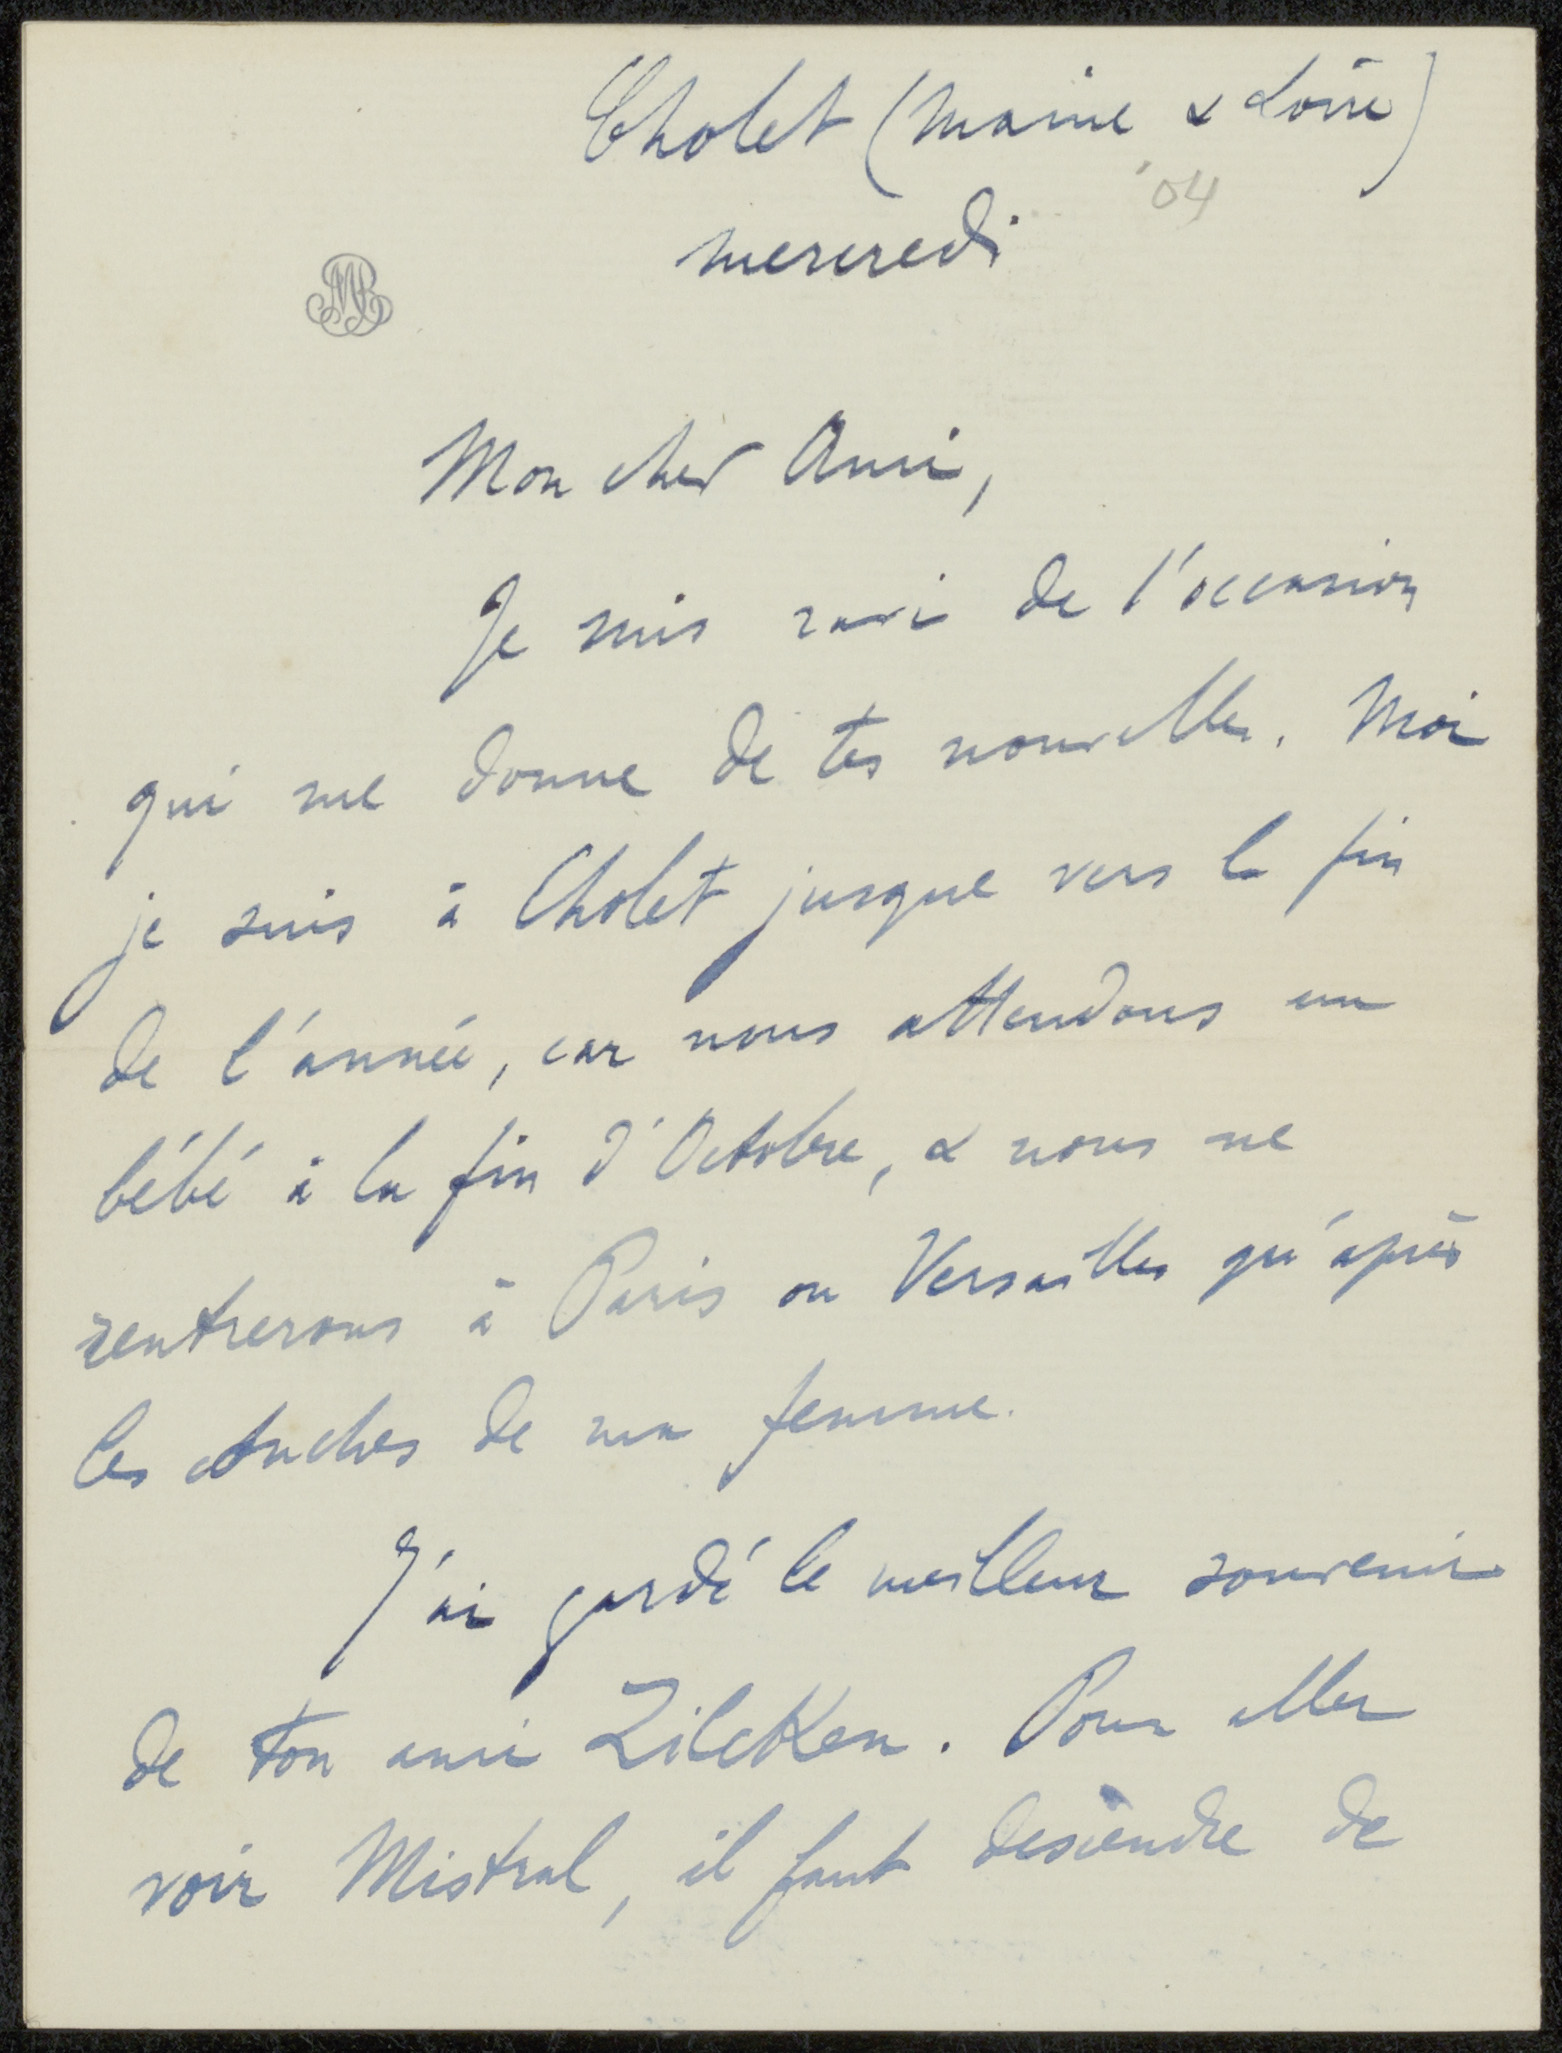 Cholet (Maine & Loire)
'04
mercredi
MB
Mon cher Ami,
Je suis ravi de l'occasion
qui me donne de tes nouvelles. Moi
je suis à Cholet jusque vers la fin
de l'année, car nous attendons un
bébé à la fin d'Octobre, & nous ne
rentrerons à Paris ou Versailles qu'après
les couches de ma femme.
J'ai gardé le meilleur souvenir
de ton ami Zilcken. Pour aller
voir Mistral, il faut descendre de